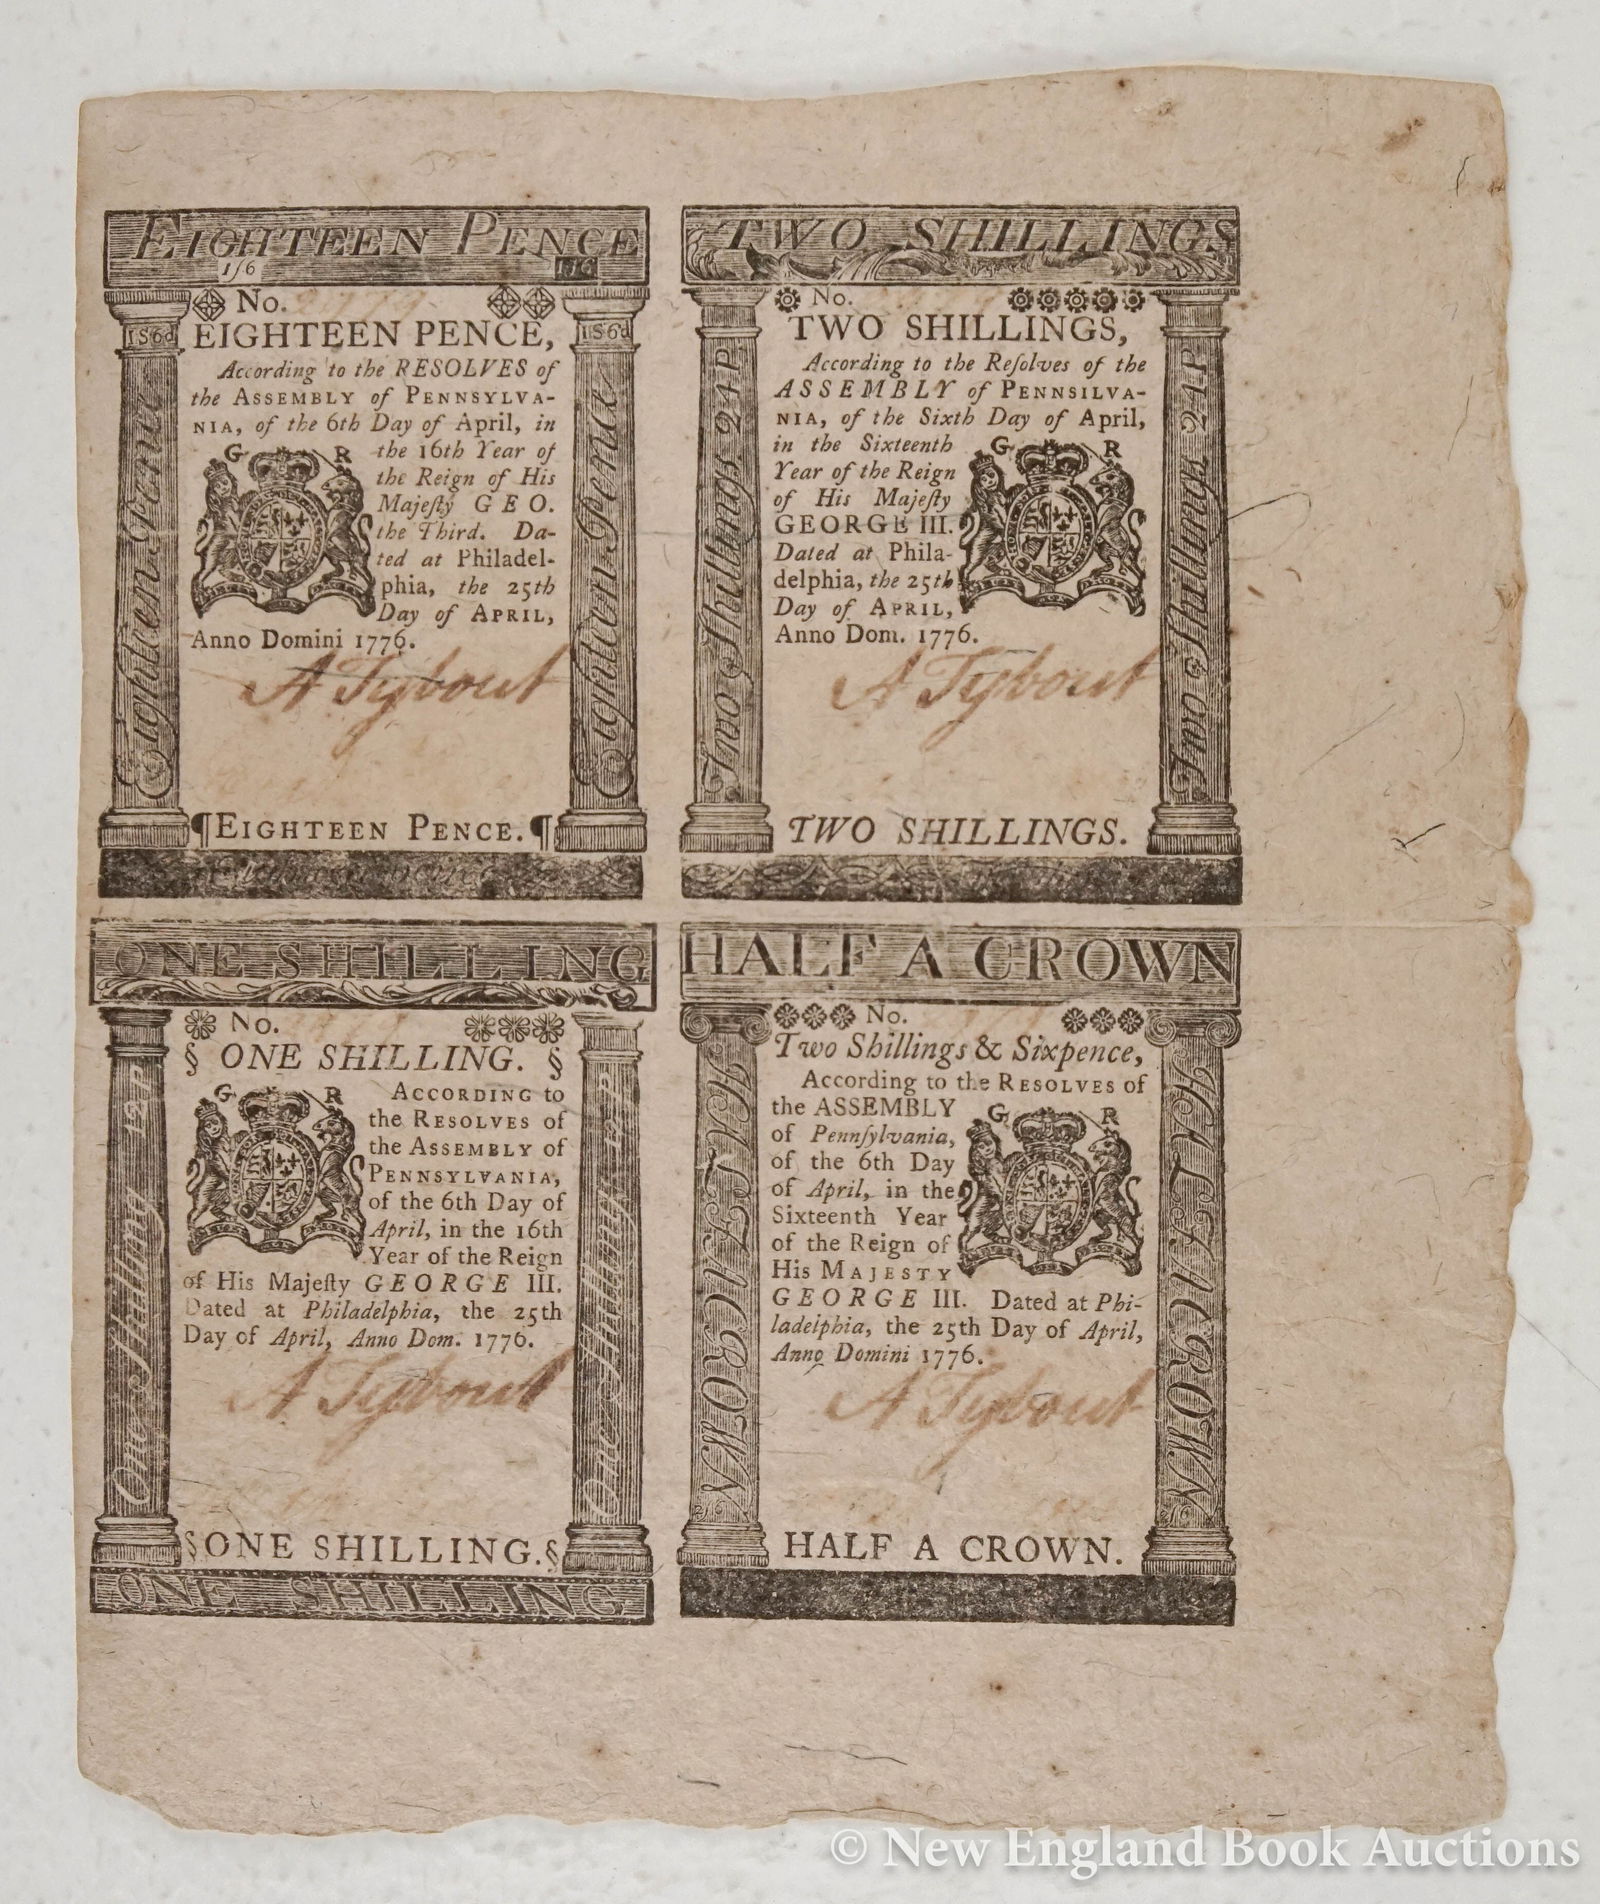 EIGHTEEN PENCE
1/6 1/6
No.
1S6d 1S6d
EIGHTEEN PENCE,
According to the RESOLVES of
the ASSEMBLY of PENNSYLVA-
NIA, of the 6th Day of April, in
the 16th Year of
G R
the Reign of His
Majeſty GEO.
the Third. Da-
ted at Philadel-
phia, the 25th
Day of APRIL,
Anno Domini 1776.
A Tybout
Eighteen Pence
Eighteen Pence
¶EIGHTEEN PENCE.¶
TWO SHILLINGS
No.
TWO SHILLINGS,
According to the Reſolves of the
ASSEMBLY of PENNSILVA-
NIA, of the Sixth Day of April,
in the Sixteenth
G R
Year of the Reign
of His Majeſty
GEORGE III.
Dated at Phila-
delphia, the 25th
Day of APRIL,
Anno Dom. 1776.
A Tybout
Two Shillings 24P
Two Shillings 24P
TWO SHILLINGS.
ONE SHILLING
No.
§ ONE SHILLING. §
G R
ACCORDING to
the RESOLVES of
the ASSEMBLY of
PENNSYLVANIA,
of the 6th Day of
April, in the 16th
Year of the Reign
of His Majeſty GEORGE III.
Dated at Philadelphia, the 25th
Day of April, Anno Dom. 1776.
A Tybout
One Shilling 12 P
One Shilling 12 P
§ONE SHILLING.§
ONE SHILLING
HALF A CROWN
No.
Two Shillings & Sixpence,
According to the RESOLVES of
the ASSEMBLY
G R
of Pennſylvania,
of the 6th Day
of April, in the
Sixteenth Year
of the Reign of
His MAJESTY
GEORGE III. Dated at Phi-
ladelphia, the 25th Day of April,
Anno Domini 1776.
A Tybout
HALF A CROWN
HALF A CROWN
2/6 2/6
HALF A CROWN.
© New England Book Auctions